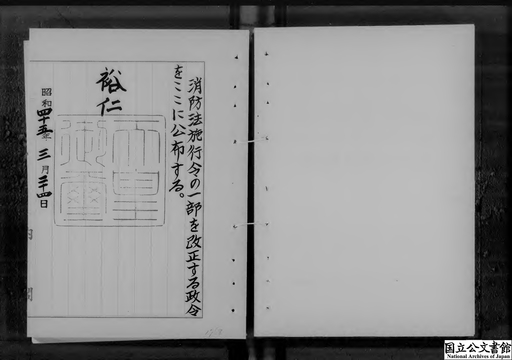 消防法施行令の一部を改正する政令
をここに公布する。
裕仁
天皇御璽
昭和四十五年三月二十四日
国立公文書館
National Archives of Japan